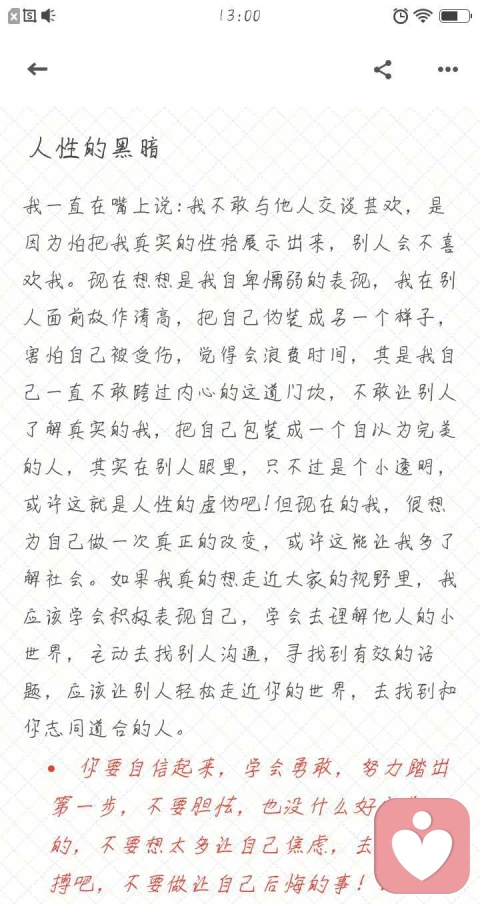 13:00
人性的黑暗
我一直在嘴上说:我不敢与他人交谈甚欢，是
因为怕把我真实的性格展示出来，别人会不喜
欢我。现在想想是我自卑懦弱的表现，我在别
人面前故作清高，把自己伪装成另一个样子，
害怕自己被受伤，觉得会浪费时间，其是我自
己一直不敢跨过内心的这道门坎，不敢让别人
了解真实的我，把自己包装成一个自以为完美
的人，其实在别人眼里，只不过是个小透明，
或许这就是人性的虚伪吧!但现在的我，很想
为自己做一次真正的改变，或许这能让我多了
解社会。如果我真的想走近大家的视野里，我
应该学会积极表现自己，学会去理解他人的小
世界，主动去找别人沟通，寻找到有效的话
题，应该让别人轻松走近你的世界，去找到和
你志同道合的人。
• 你要自信起来，学会勇敢，努力踏出
第一步，不要胆怯，也没什么好
的，不要想太多让自己焦虑，去
搏吧，不要做让自己后悔的事!